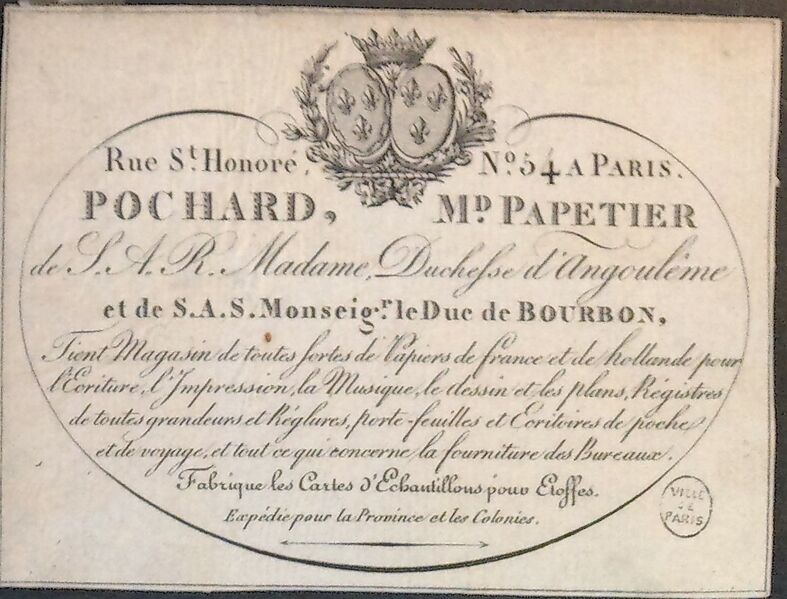 Rue St. Honoré, No. 54 A PARIS.
POCHARD, MD. PAPETIER
de S. A. R. Madame, Duchesse d'Angoulême
et de S.A.S. Monseigr. le Duc de BOURBON,
Tient Magasin de toutes sortes de Papiers de france et de hollande pour
l'Ecriture, l'Impression, la Musique, le dessin et les plans, Régistres
de toutes grandeurs et Réglures, porte-feuilles et Ecritoires de poche
et de voyage, et tout ce qui concerne la fourniture des Bureaux.
Fabrique les Cartes d'Echantillons pour Etoffes.
Expédie pour la Province et les Colonies.
VILLE
DE
PARIS